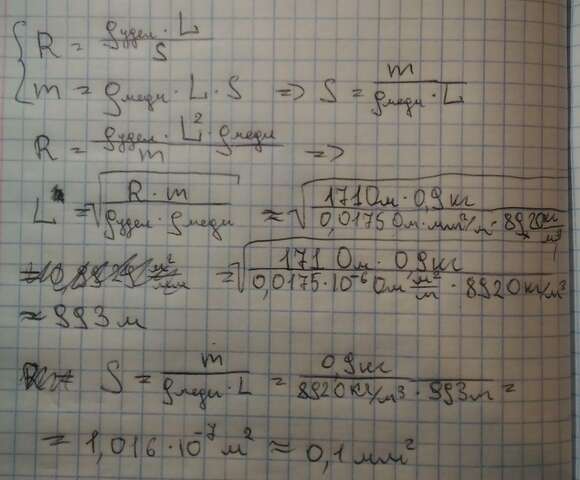 R = ρудел · L / S
m = ρмеди · L · S => S = m / ρмеди · L
R = ρудел · L² · ρмеди / m =>
L = √(R · m / ρудел · ρмеди) ≈ √(171 Ом · 0,9 кг / 0,0175 Ом·мм²/м · 8920 кг/м³)
= √(171 Ом · 0,9 кг / 0,0175·10⁻⁶ Ом м²/м · 8920 кг/м³)
≈ 993 м
S = m / ρмеди · L = 0,9 кг / 8920 кг/м³ · 993 м =
= 1,016 · 10⁻⁷ м² ≈ 0,1 мм²